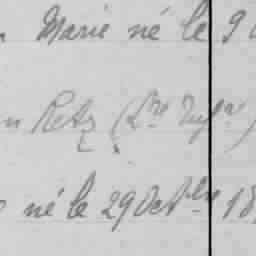 Marie né le 9
en Retz (Lre Infre)
né le 29 Octbre 18